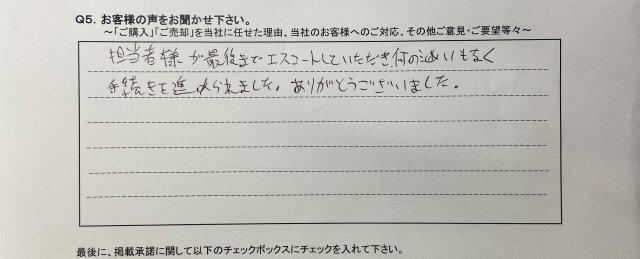 Q5. お客様の声をお聞かせ下さい。
～「ご購入」「ご売却」を当社に任せた理由、当社のお客様へのご対応、その他ご意見・ご要望等々～
担当者様が最後までエスコートしていただき何の迷いもなく
手続きを進められました。ありがとうございました。
最後に、掲載承諾に関して以下のチェックボックスにチェックを入れて下さい。